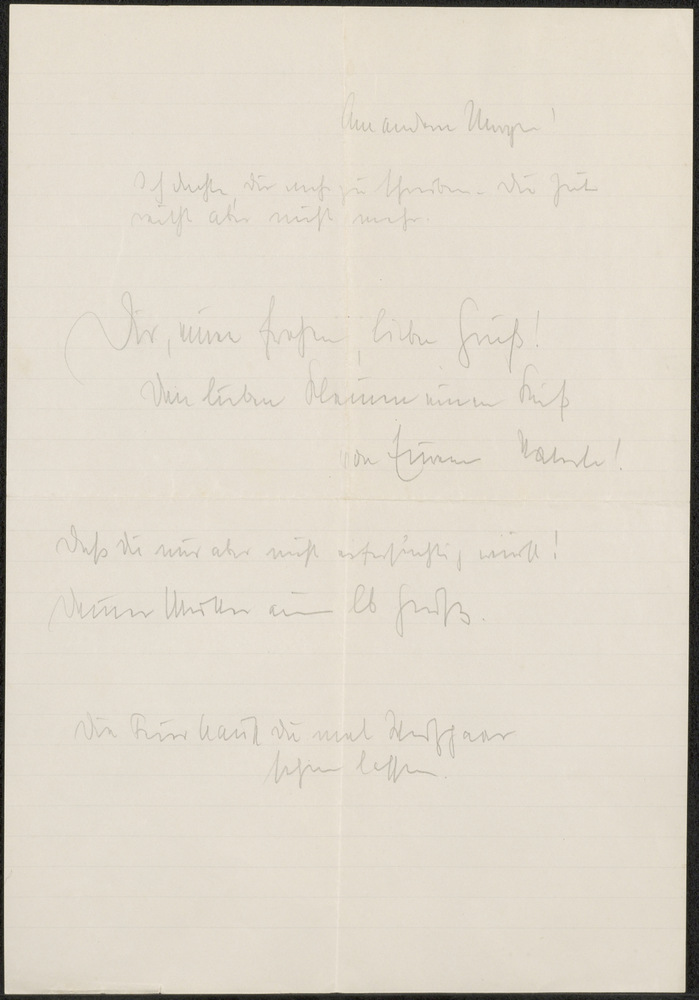 Am andern Morgen!
Ich dachte, dir mehr zu schreiben. Die Zeit
reicht aber nicht mehr.
Dir, einen frohen, lieben Gruß!
Den lieben Kleinen einen Kuß
von Eurem Vaterle!
Daß du mir aber nicht eifersüchtig wirst!
Deiner Mutter ein lb Gruß.
Die kannst du mal
sehen lassen.